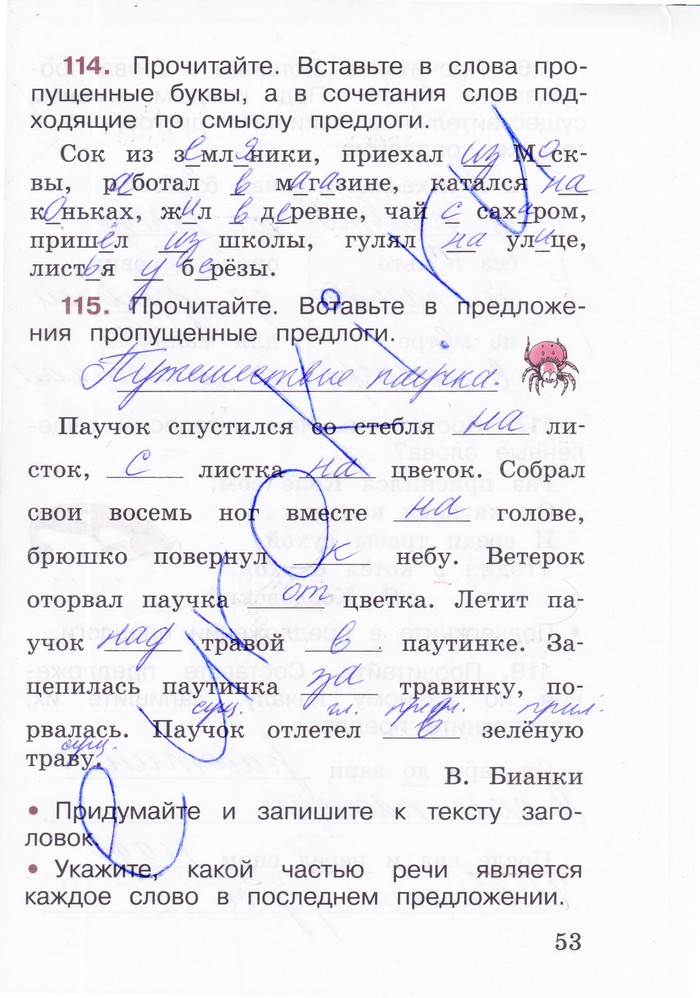 114. Прочитайте. Вставьте в слова про-
пущенные буквы, а в сочетания слов под-
ходящие по смыслу предлоги.
Сок из земляники, приехал из Моск-
вы, работал в магазине, катался на
коньках, жил в деревне, чай с сахаром,
пришёл из школы, гулял на улице,
листья у берёзы.
115. Прочитайте. Вставьте в предложе-
ния пропущенные предлоги.
Путешествие паучка.
Паучок спустился со стебля на ли-
сток, с листка на цветок. Собрал
свои восемь ног вместе на голове,
брюшко повернул к небу. Ветерок
оторвал паучка от цветка. Летит па-
учок над травой в паутинке. За-
цепилась паутинка за травинку, по-
сущ. гл. предл. прил.
рвалась. Паучок отлетел в зелёную
сущ.
траву.
В. Бианки
• Придумайте и запишите к тексту заго-
ловок.
• Укажите, какой частью речи является
каждое слово в последнем предложении.
53